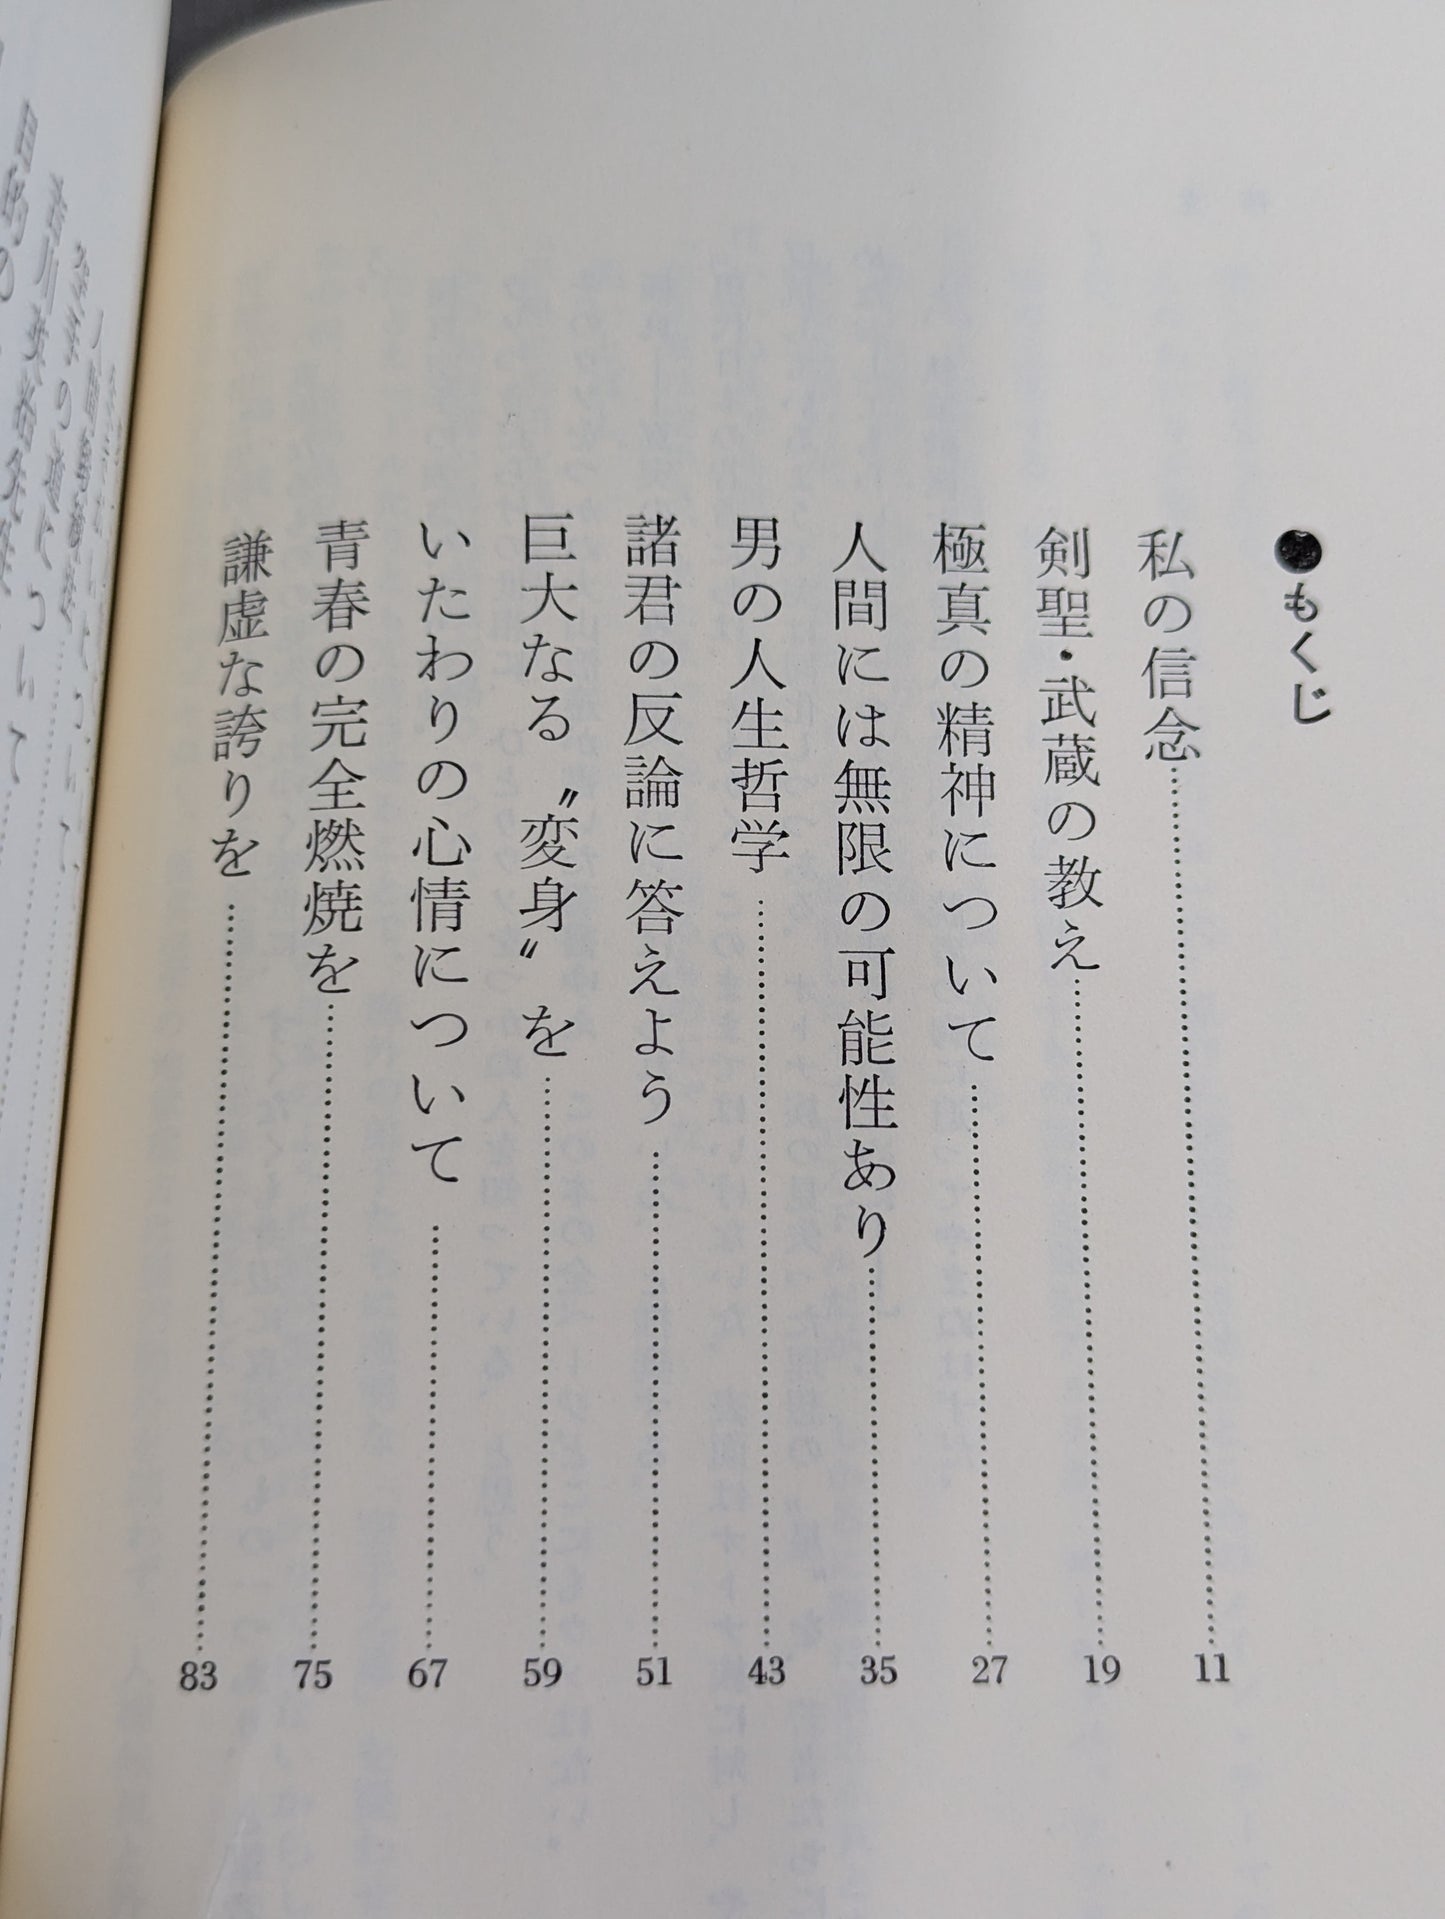 ●もくじ
私の信念……11
剣聖・武蔵の教え……19
極真の精神について……27
人間には無限の可能性あり……35
男の人生哲学……43
諸君の反論に答えよう……51
巨大なる〝変身〟を……59
いたわりの心情について……67
青春の完全燃焼を……75
謙虚な誇りを……83